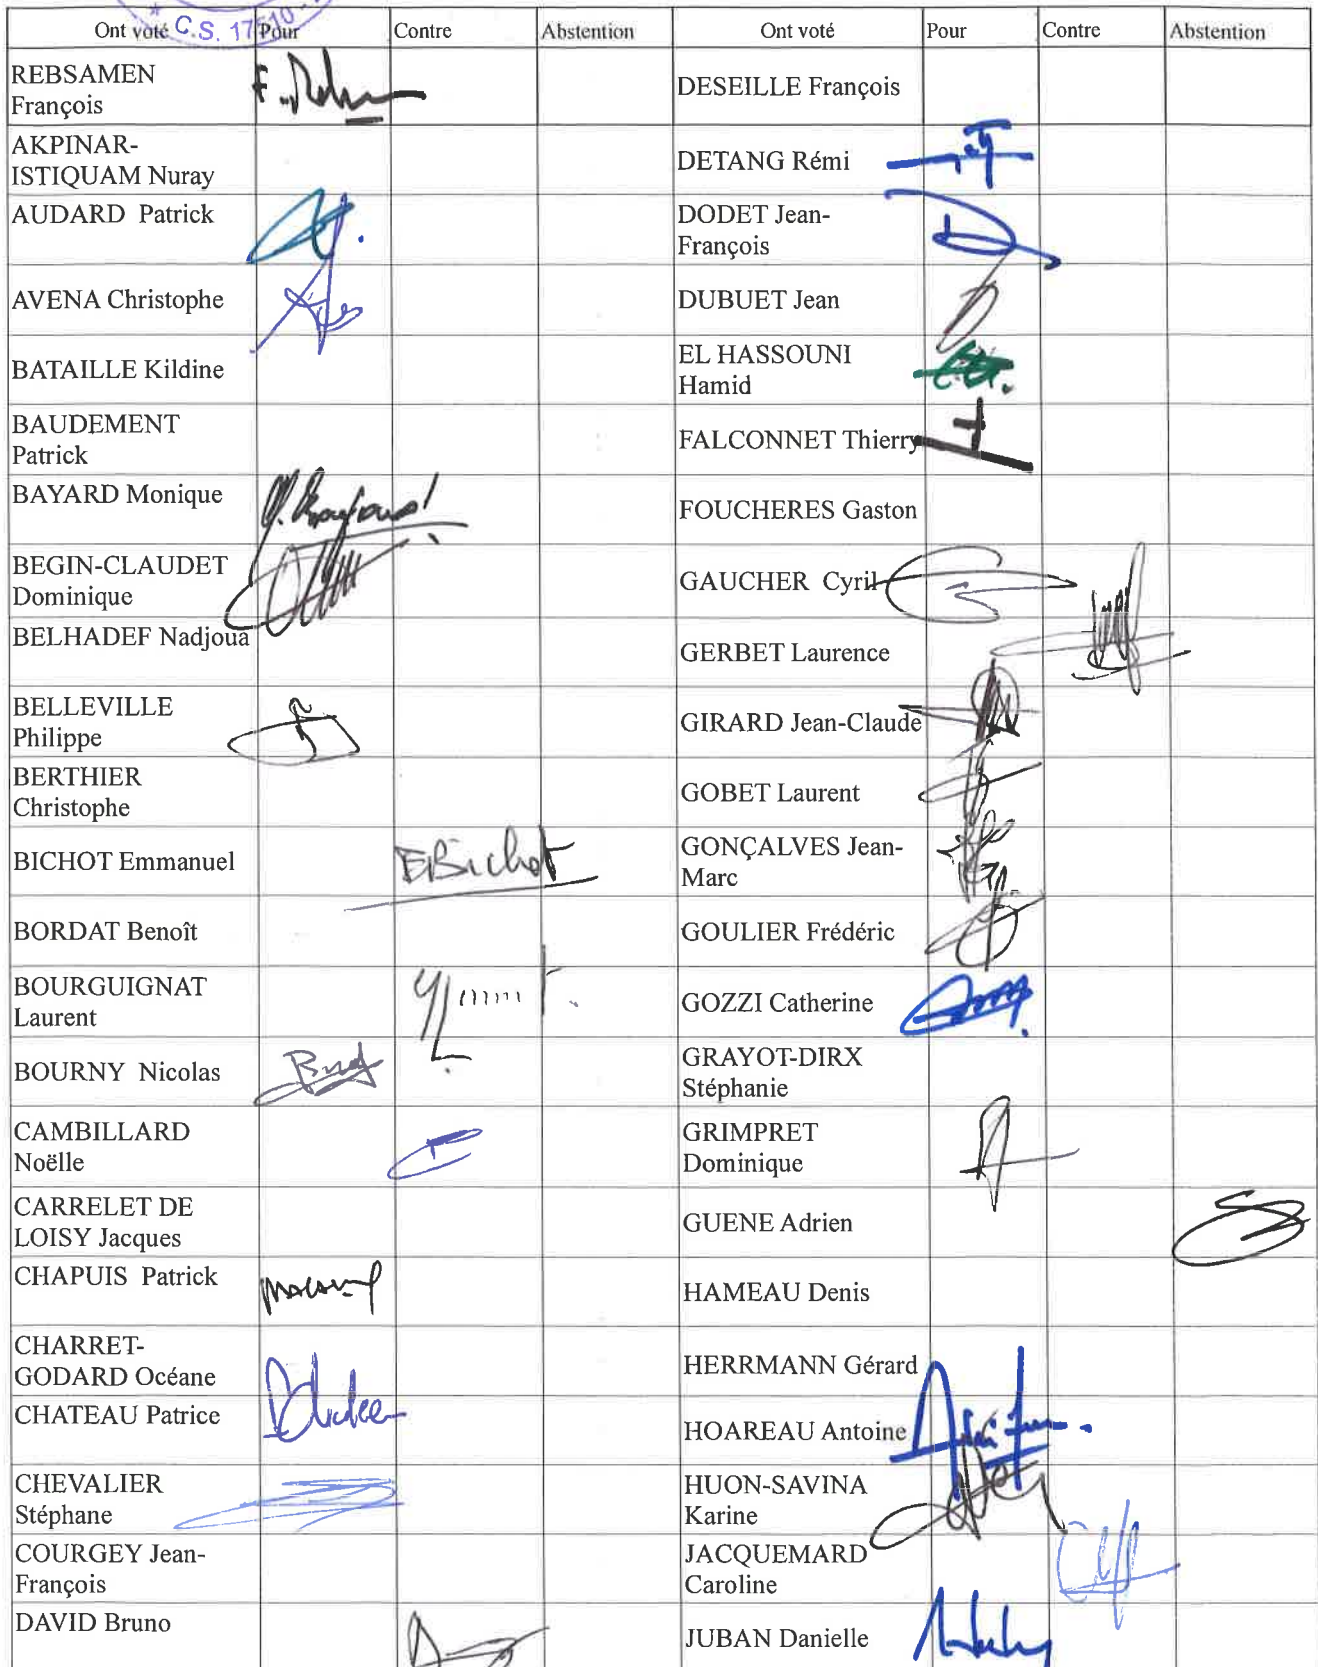 C.S. 17510
Ont voté Pour Contre Abstention Ont voté Pour Contre Abstention
REBSAMEN
François
DESEILLE François
AKPINAR-
ISTIQUAM Nuray
DETANG Rémi
AUDARD Patrick
DODET Jean-
François
AVENA Christophe
DUBUET Jean
BATAILLE Kildine
EL HASSOUNI
Hamid
BAUDEMENT
Patrick
FALCONNET Thierry
BAYARD Monique
FOUCHERES Gaston
BEGIN-CLAUDET
Dominique
GAUCHER Cyril
BELHADEF Nadjoua
GERBET Laurence
BELLEVILLE
Philippe
GIRARD Jean-Claude
BERTHIER
Christophe
GOBET Laurent
BICHOT Emmanuel
EBichot
GONÇALVES Jean-
Marc
BORDAT Benoît
GOULIER Frédéric
BOURGUIGNAT
Laurent
GOZZI Catherine
BOURNY Nicolas
GRAYOT-DIRX
Stéphanie
CAMBILLARD
Noëlle
GRIMPRET
Dominique
CARRELET DE
LOISY Jacques
GUENE Adrien
CHAPUIS Patrick
HAMEAU Denis
CHARRET-
GODARD Océane
HERRMANN Gérard
CHATEAU Patrice
HOAREAU Antoine
CHEVALIER
Stéphane
HUON-SAVINA
Karine
COURGEY Jean-
François
JACQUEMARD
Caroline
DAVID Bruno
JUBAN Danielle